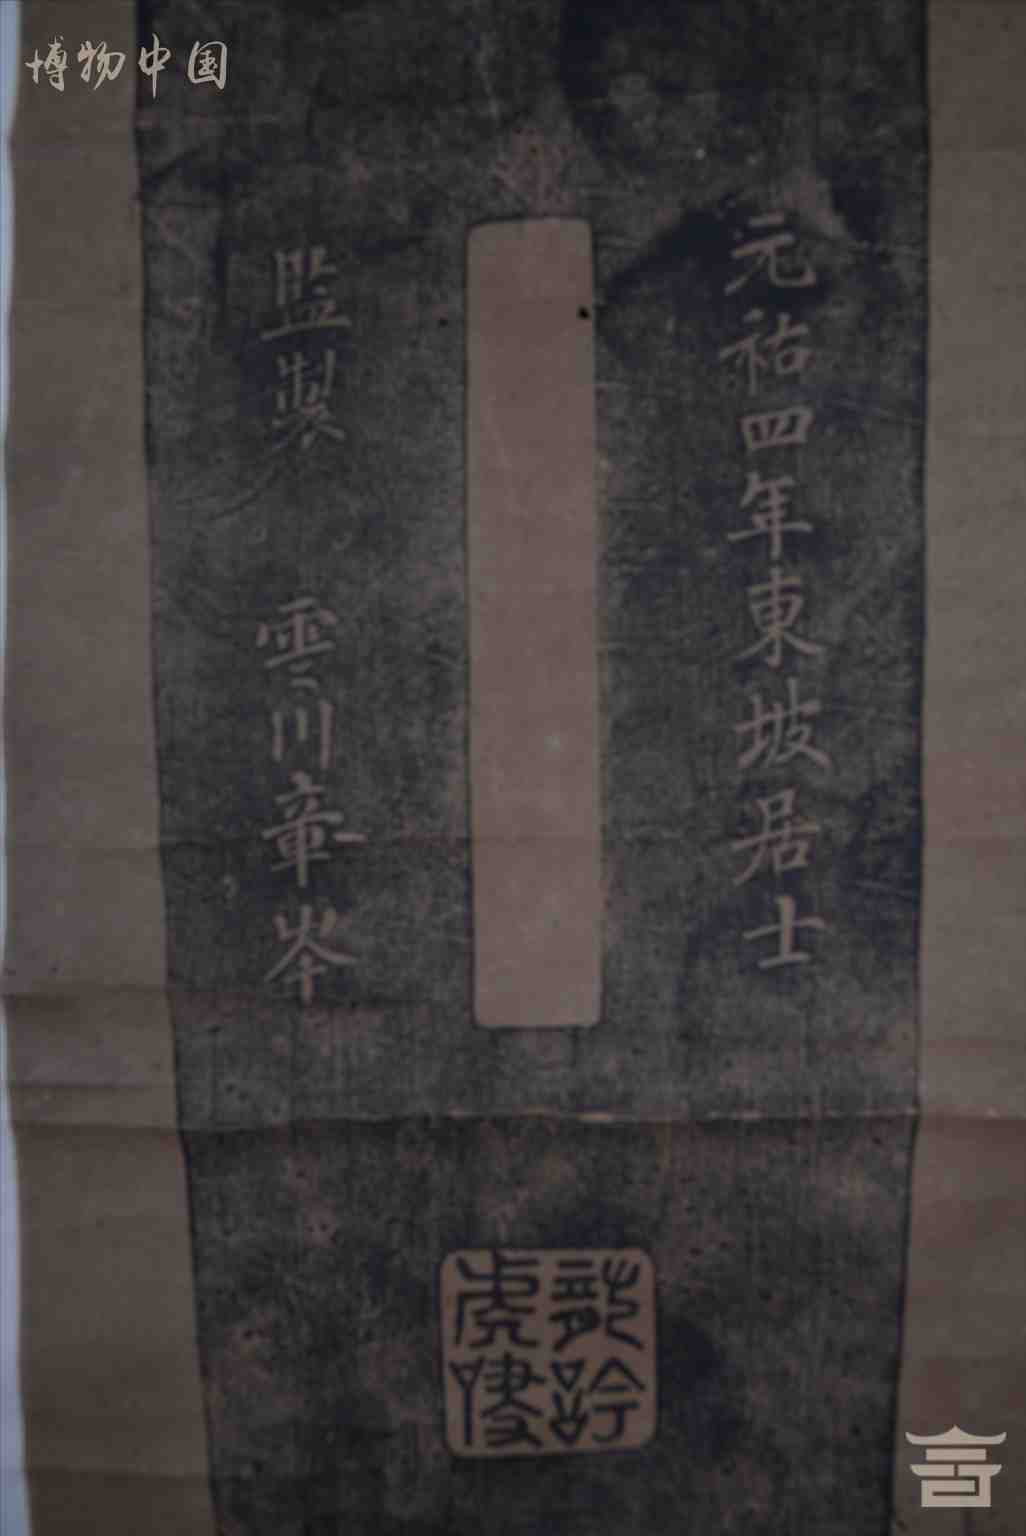 博物中国
元祐四年東坡居士
監製 雲川章岑
龍吟
虎啸